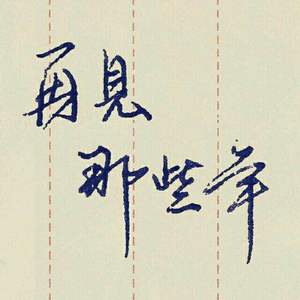 再見
那些年